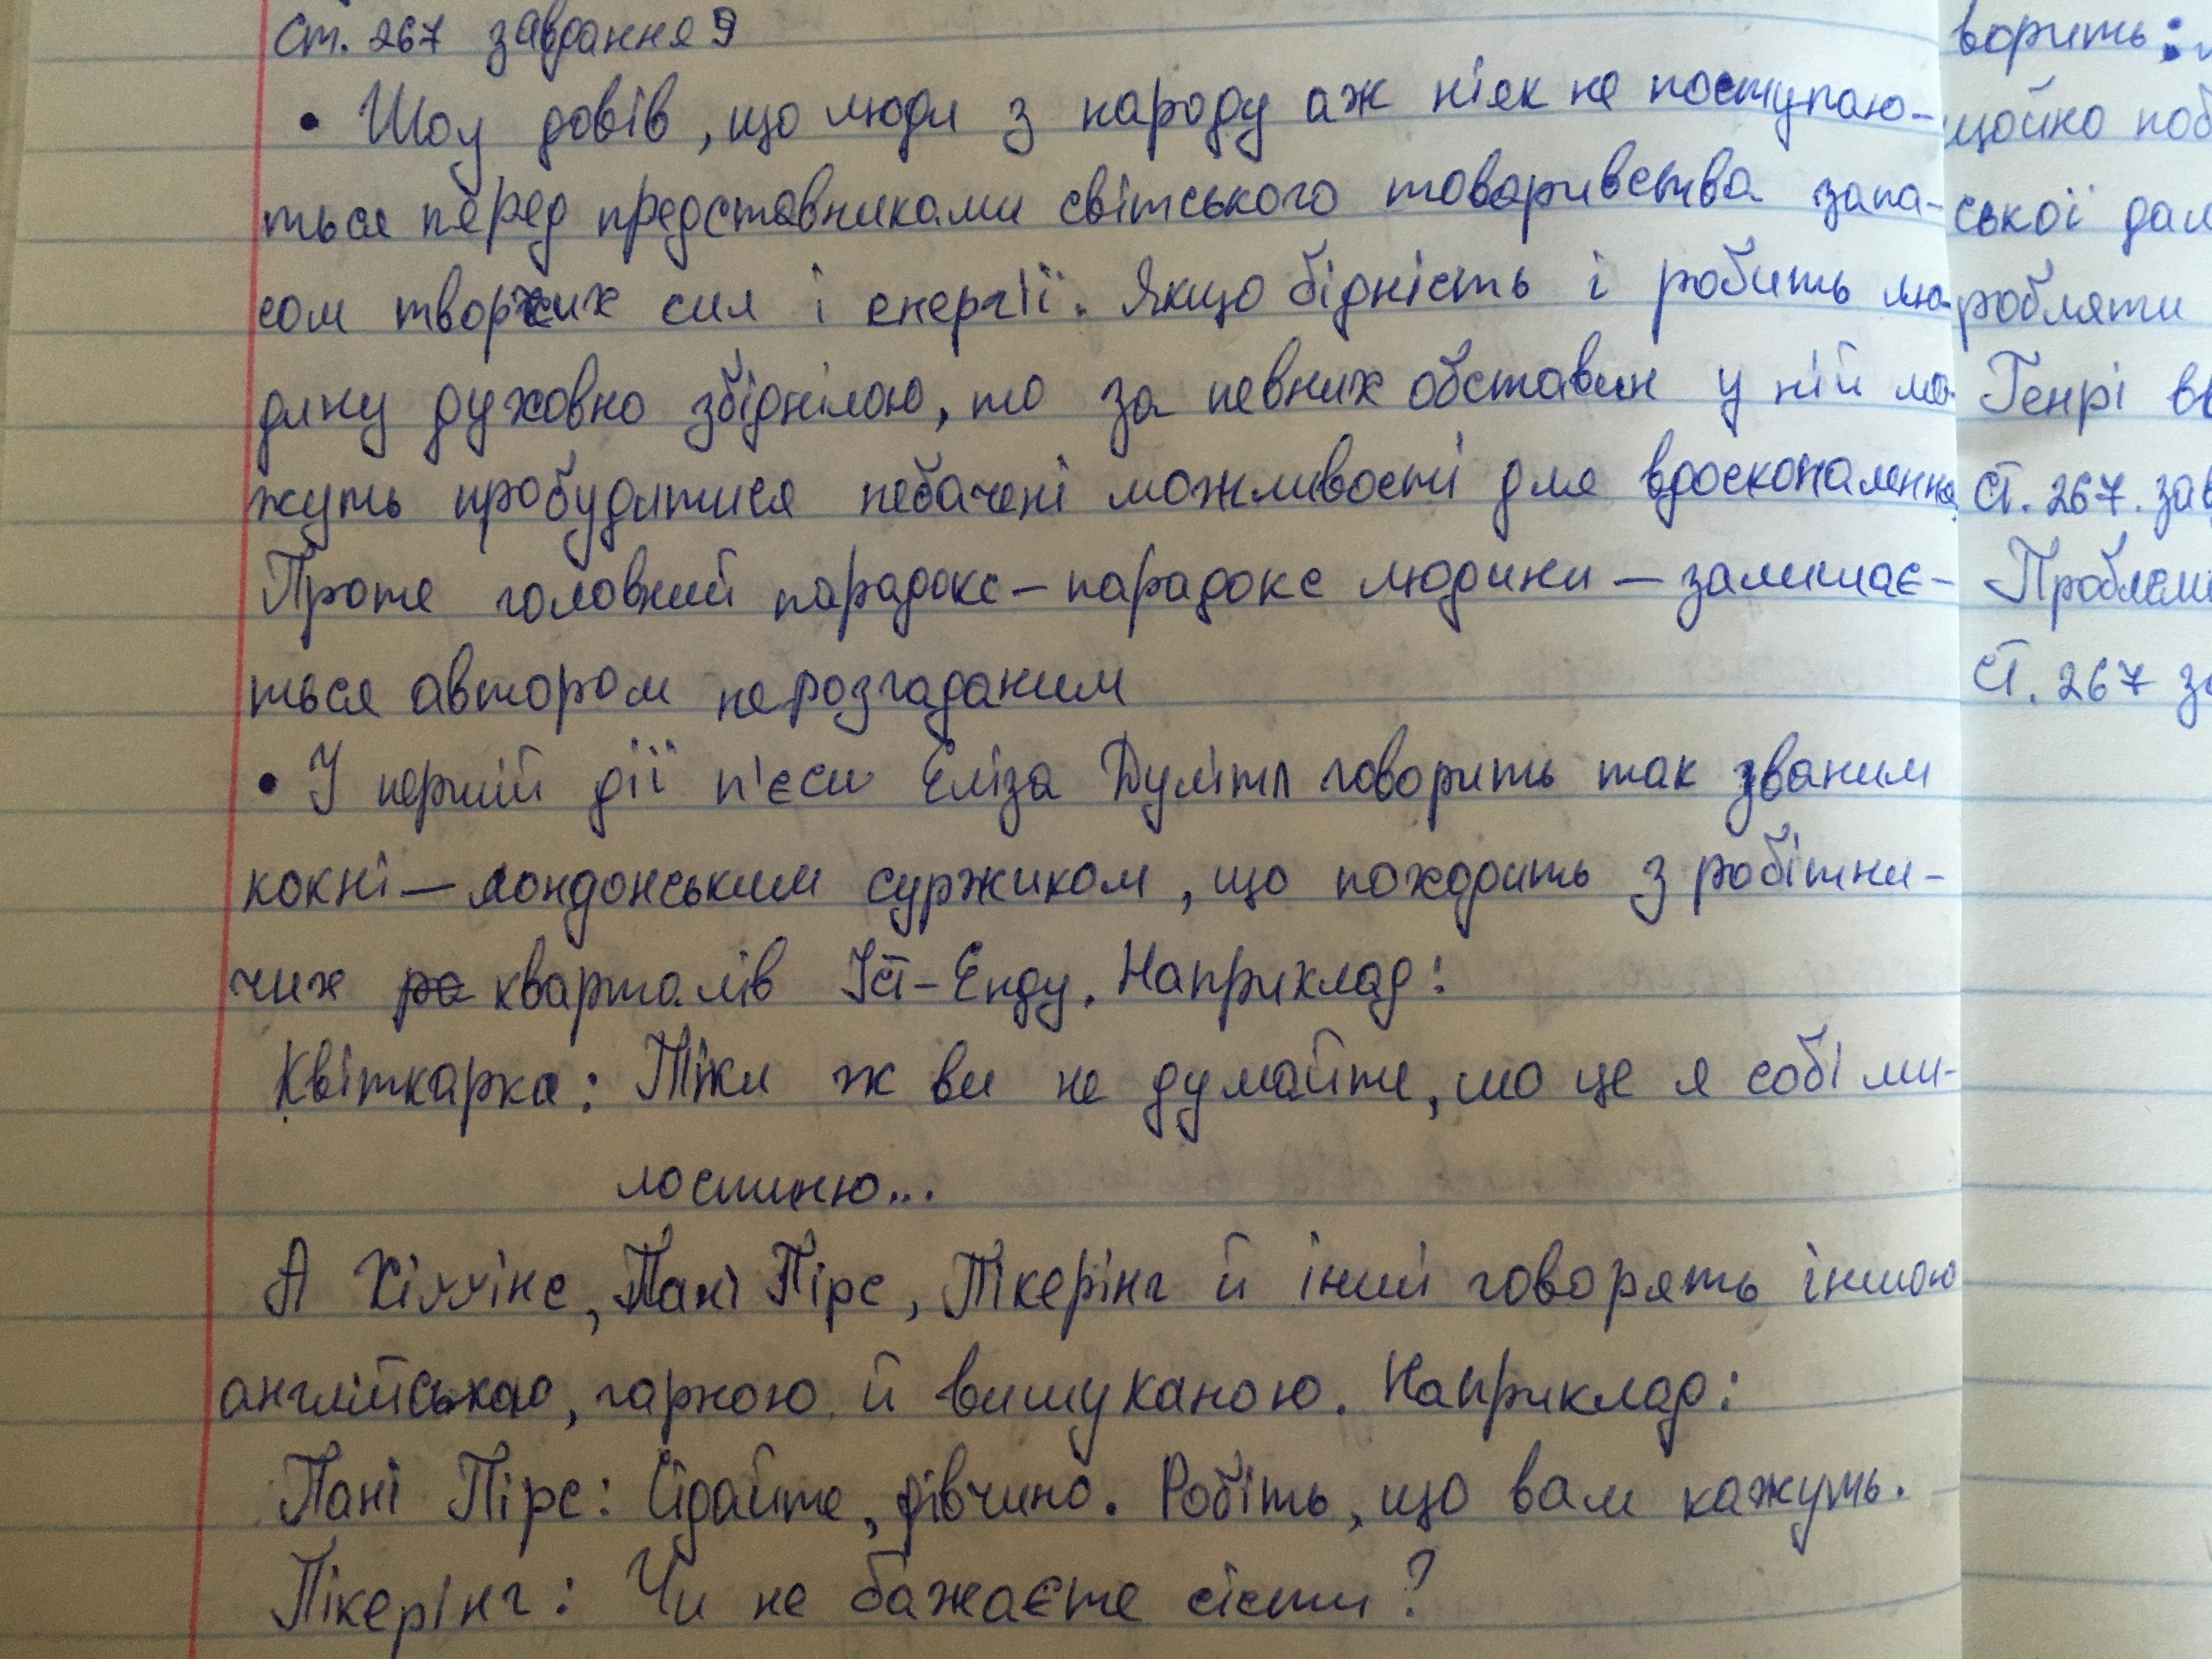 ст. 267 завдання 9
• Шоу довів, що люди з народу аж ніяк не поступаю-
ться перед представниками світського товариства запа-
сом творчих сил і енергії. Якщо бідність і робить лю-
дину духовно збіднілою, то за певних обставин у ній мо-
жуть пробудитися небачені можливості для вдосконалення.
Проте головний парадокс – парадокс людини – залишає-
ться автором нерозгаданим
• У першій дії п'єси Еліза Дулітл говорить так званим
кокні – лондонським суржиком, що походить з робітни-
чих кварталів Іст-Енду. Наприклад:
Квіткарка: Тіки ж ви не думайте, шо це я собі ми-
лостиню...
А Хіггінс, Пані Пірс, Пікерінг й інші говорять іншою
англійською, гарною й вишуканою. Наприклад:
Пані Пірс: Сідайте, дівчино. Робіть, що вам кажуть.
Пікерінг: Чи не бажаєте сісти?
ворить:
щойно
ської
робляти
Генрі
ст. 267.
ст. 267